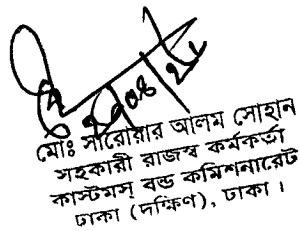 মোঃ সারোয়ার আলম সোহান
সহকারী রাজস্ব কর্মকর্তা
কাস্টমস্ বন্ড কমিশনারেট
ঢাকা (দক্ষিণ), ঢাকা।